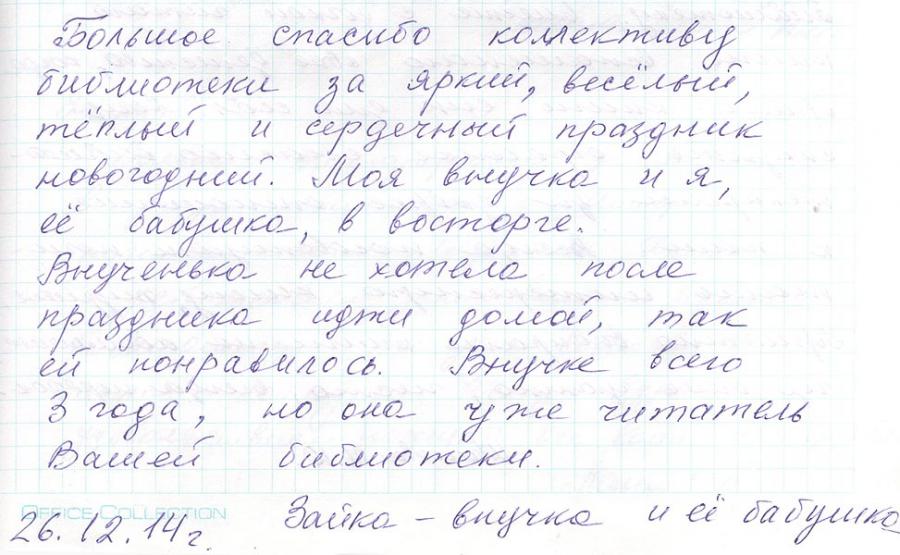 Большое спасибо коллективу
библиотеки за яркий, весёлый,
тёплый и сердечный праздник
новогодний. Моя внучка и я,
её бабушка, в восторге.
Внученька не хотела после
праздника иджи домой, так
ей понравилось. Внучке всего
3 года, но она уже читатель
Вашей библиотеки.
OFFICE COLLECTION
26.12.14г. Зайка – внучка и её бабушка